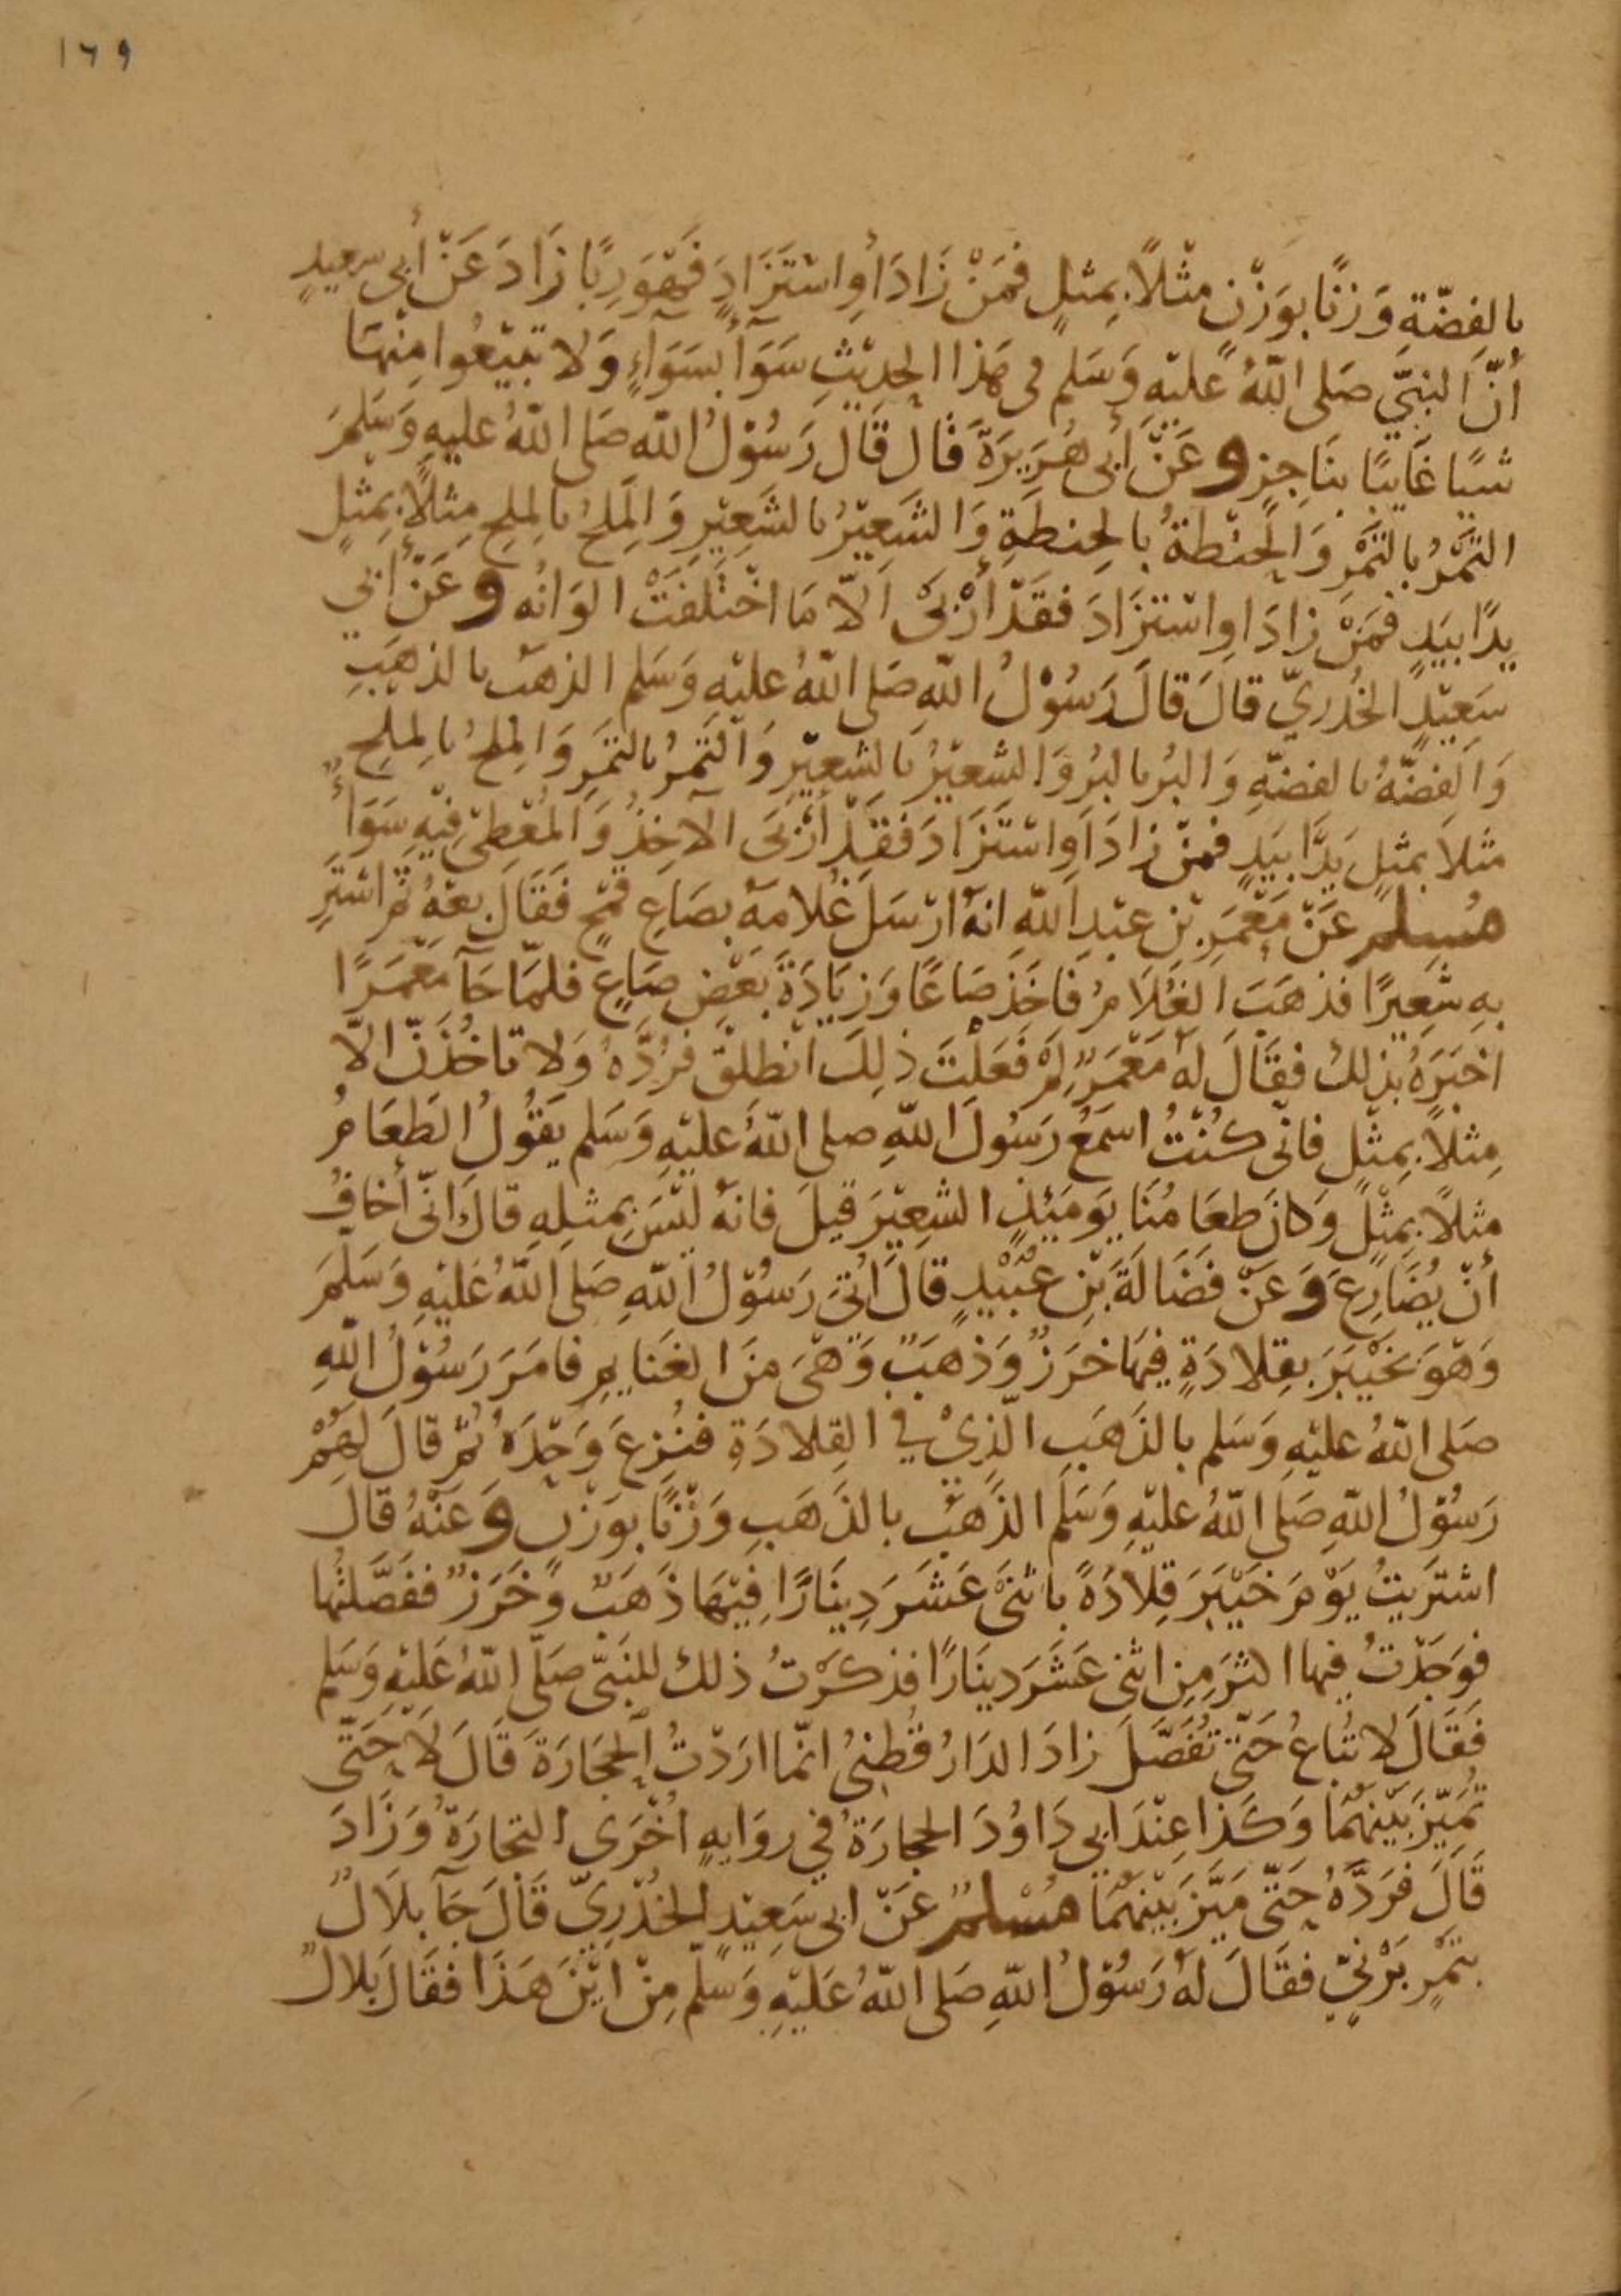 ١٦٩
بِالفِضّةِ وَزنًا بوَزْنٍ مثْلاً بِمِثلٍ فمَنْ زَادَ أوِ اسْتَزَادَ فَهْوَ رِبًا زَادَ عَنْ أبى سعيدٍ
أنّ النبىَّ صَلى اللّٰهُ عليْهِ وَسَلم فى هَذا الحدِيْثِ سَوَآءً بسَوَآءٍ وَلا تبيْعُوا مِنْهَا
شيًا غَايبًا بنَاجِزٍ وعَنْ أبى هُرَيرَةَ قال قَالَ رَسُوْلُ اللّٰه صَلى اللّٰهُ عليهِ وَسَلمَ
التَّمْرُ بالتَّمْرِ وَالحِنْطةُ بالحِنطَةِ وَالشَعِيْرُ بالشَعِيْرِ وَالمِلحُ بالمِلحِ مِثلاً بِمِثلٍ
يدًا بيَدٍ فمَنْ زادَ اوِ اسْتزَادَ فقَدْ أرْبَى الاّ مَا اخْتَلفَتْ الوَانُه وعَنْ أبي
سَعِيْدٍ الخُدْريّ قالَ قالَ رَسُوْلُ اللّٰهِ صَلى اللّٰهُ عليْهِ وَسَلم الذهَبُ بالذهَبِ
وَالفِضَّةُ بالفضَّةِ وَالبُرُ بالبُرِ وَالشعيْرُ بالشعِيْرِ وَالتَّمرُ بالتمَرِ وَالمِلحُ بالمِلحِ
مثلاً بمثلٍ يَدًا بيَدٍ فمنْ زادَ أوِ اسْتَزَادَ فقَدْ أرْبَى الآخِذُ وَالمُعْطِىْ فِيْهِ سَوَآءٌ
مُسلم عَنْ مَعْمَرِ بْن عبْدِ اللّٰهِ انهُ ارْسَلَ غُلامَهُ بصَاعِ قمْحٍ فقَالَ بعْهُ ثم اشترِ
بهِ شعِيرًا فذهَبَ الغُلاَمُ فاخَذ صَاعًا وَزيَادَةَ بَعْضِ صَاعٍ فلمّا جَآ مَعْمَرًا
اخْبَرَهُ بذلكَ فقَالَ لهُ مَعْمَرٌ لِمَ فعَلْتَ ذلِكَ انْطلقْ فرُدَّهُ وَلا تاخُذَنّ الاّ
مِثلاً بِمِثْلٍ فانّى كُنْتُ اسمَعُ رَسُولَ اللّٰهِ صلى اللّٰهُ عليْهِ وَسَلم يَقُوْلُ الطَعَامُ
مثلاً بِمِثْلٍ وَكانَ طعَامُنَا يَوْمَئِذٍ الشعِيْرَ قيلَ فانهُ ليْسَ بِمثلِهِ قالَ انّى أخافُ
أنْ يُضَارِعَ وَعَنْ فَضَالَةَ بْنِ عُبَيْدٍ قالَ اُتِىَ رَسُوْلُ اللّٰهِ صَلى اللّٰهُ عَليْهِ وَسَلمَ
وَهْوَ بخَيْبَرَ بقِلادَةٍ فيْهَا خرَزٌ وَذهَبٌ وَهْىَ مِنَ الغَنايمِ فامَرَ رَسُوْلُ اللّٰهِ
صَلى اللّٰهُ عليْهِ وَسَلم بالذَهَبِ الّذِىْ في القِلادَةِ فنُزِعَ وَحْدَهُ ثُمّ قالَ لهُمْ
رَسُوْلُ اللّٰهِ صَلى اللّٰهُ عليْهِ وَسَلَم الذَهَبُ بالذَهَبِ وَزْنًا بوَزْنٍ وعَنْهُ قالَ
اشتَرَيتُ يوْمَ خَيْبَرَ قِلادَةً باثنَىْ عَشَرَ دِينَارًا فِيْهَا ذَهَبٌ وَخَرَزٌ ففَصَّلتُها
فوَجَدْتُ فيها اكثرَ مِن اثنى عَشَرَ دينَارًا فذكرْتُ ذلكَ للنَبىّ صَلّى اللّٰهُ عَليْهِ وَسَلم
فَقَالَ لا تُبَاعُ حَتّى تُفَصَّلَ زادَ الدَارُقُطنِىُ انّما ارَدْتُ الحجَارَةَ قَالَ لاَ حَتّى
تُمَيّزَ بَيْنَهُمَا وَكَذا عِنْدَ ابي دَاوُدَ الحجارَةُ في روَايهٍ اُخْرَى التجارَةُ وَزَادَ
قَالَ فرَدَّهُ حَتّى مَيَّزَ بَيْنَهُمَا مُسْلمٌ عَنْ ابى سَعِيْدٍ الخُدْرِيّ قَالَ جَآ بلاَلٌ
بتمْرٍ بَرْنيّ فقَالَ لهُ رَسُوْلُ اللّٰهِ صَلى اللّٰهُ عَليْهِ وَسَلّم مِنْ ايْنَ هَذَا فقَالَ بلالٌ